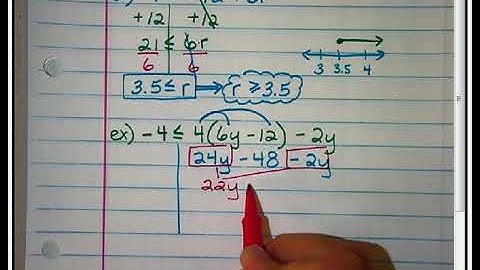 +12 +12
21 ≤ 6r
6 6
3 3.5 4
3.5 ≤ r → r ≥ 3.5
ex) -4 ≤ 4(6y - 12) - 2y
24y - 48 - 2y
22y